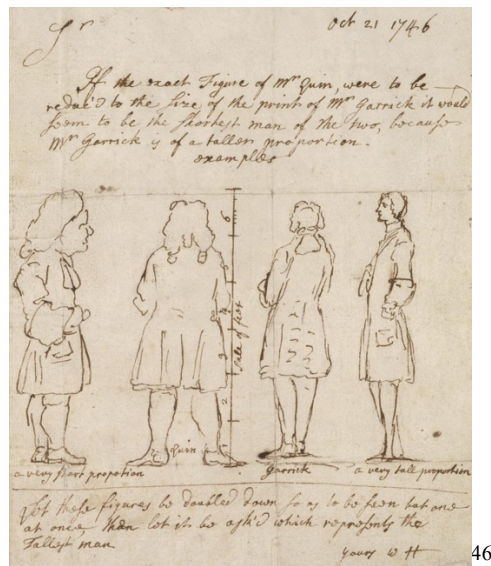 Sr
Oct 21 1746
If the exact Figure of Mr Quin, were to be
reduc'd to the size of the print of Mr Garrick it would
seem to be the shortest man of the two, because
Mr Garrick is of a taller proportion.
examples
6
5
4
3
2
1
scale of feet
Quin
a very short propotion
Garrick
a very tall proportion
Let these figures be doubled down so as to be seen but one
at once, then let it be ask'd which represents the
Tallest man
yours W H
46